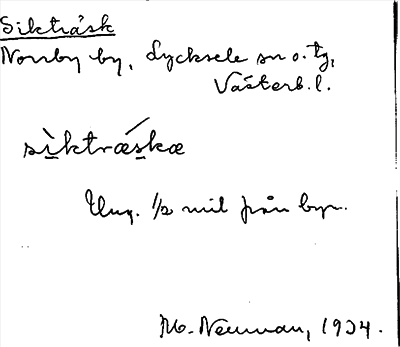 Sikträsk
Norrby by, Lycksele sn o. tg,
Västerb. l.
sìktrǽskæ
Ung. 1/2 mil från byn.
M. Neuman, 1934.